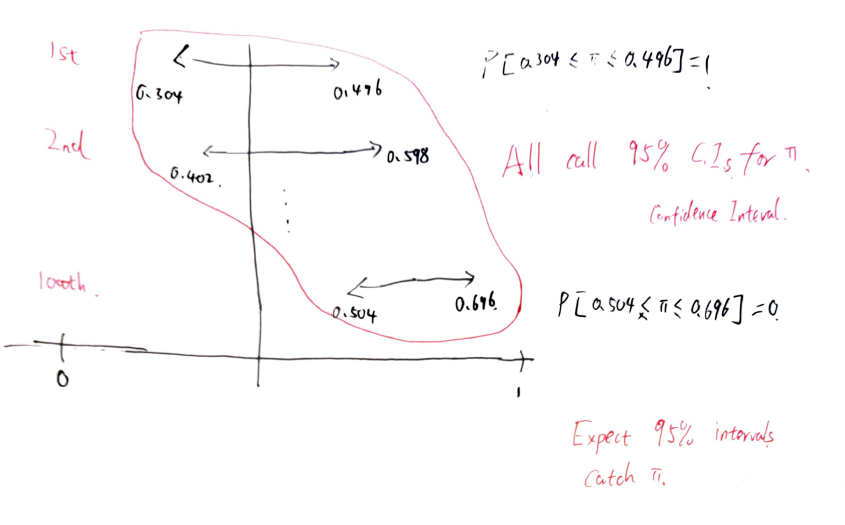 1st
0.304
0.496
P[0.304 ≤ π ≤ 0.496]=1
2nd
0.402.
0.598
All call 95% C.Is for π.
Confidence Inteval.
100th.
0.504
0.696
P[0.504 ≤ π ≤ 0.696]=0
0
1
Expect 95% intervals
Catch π.